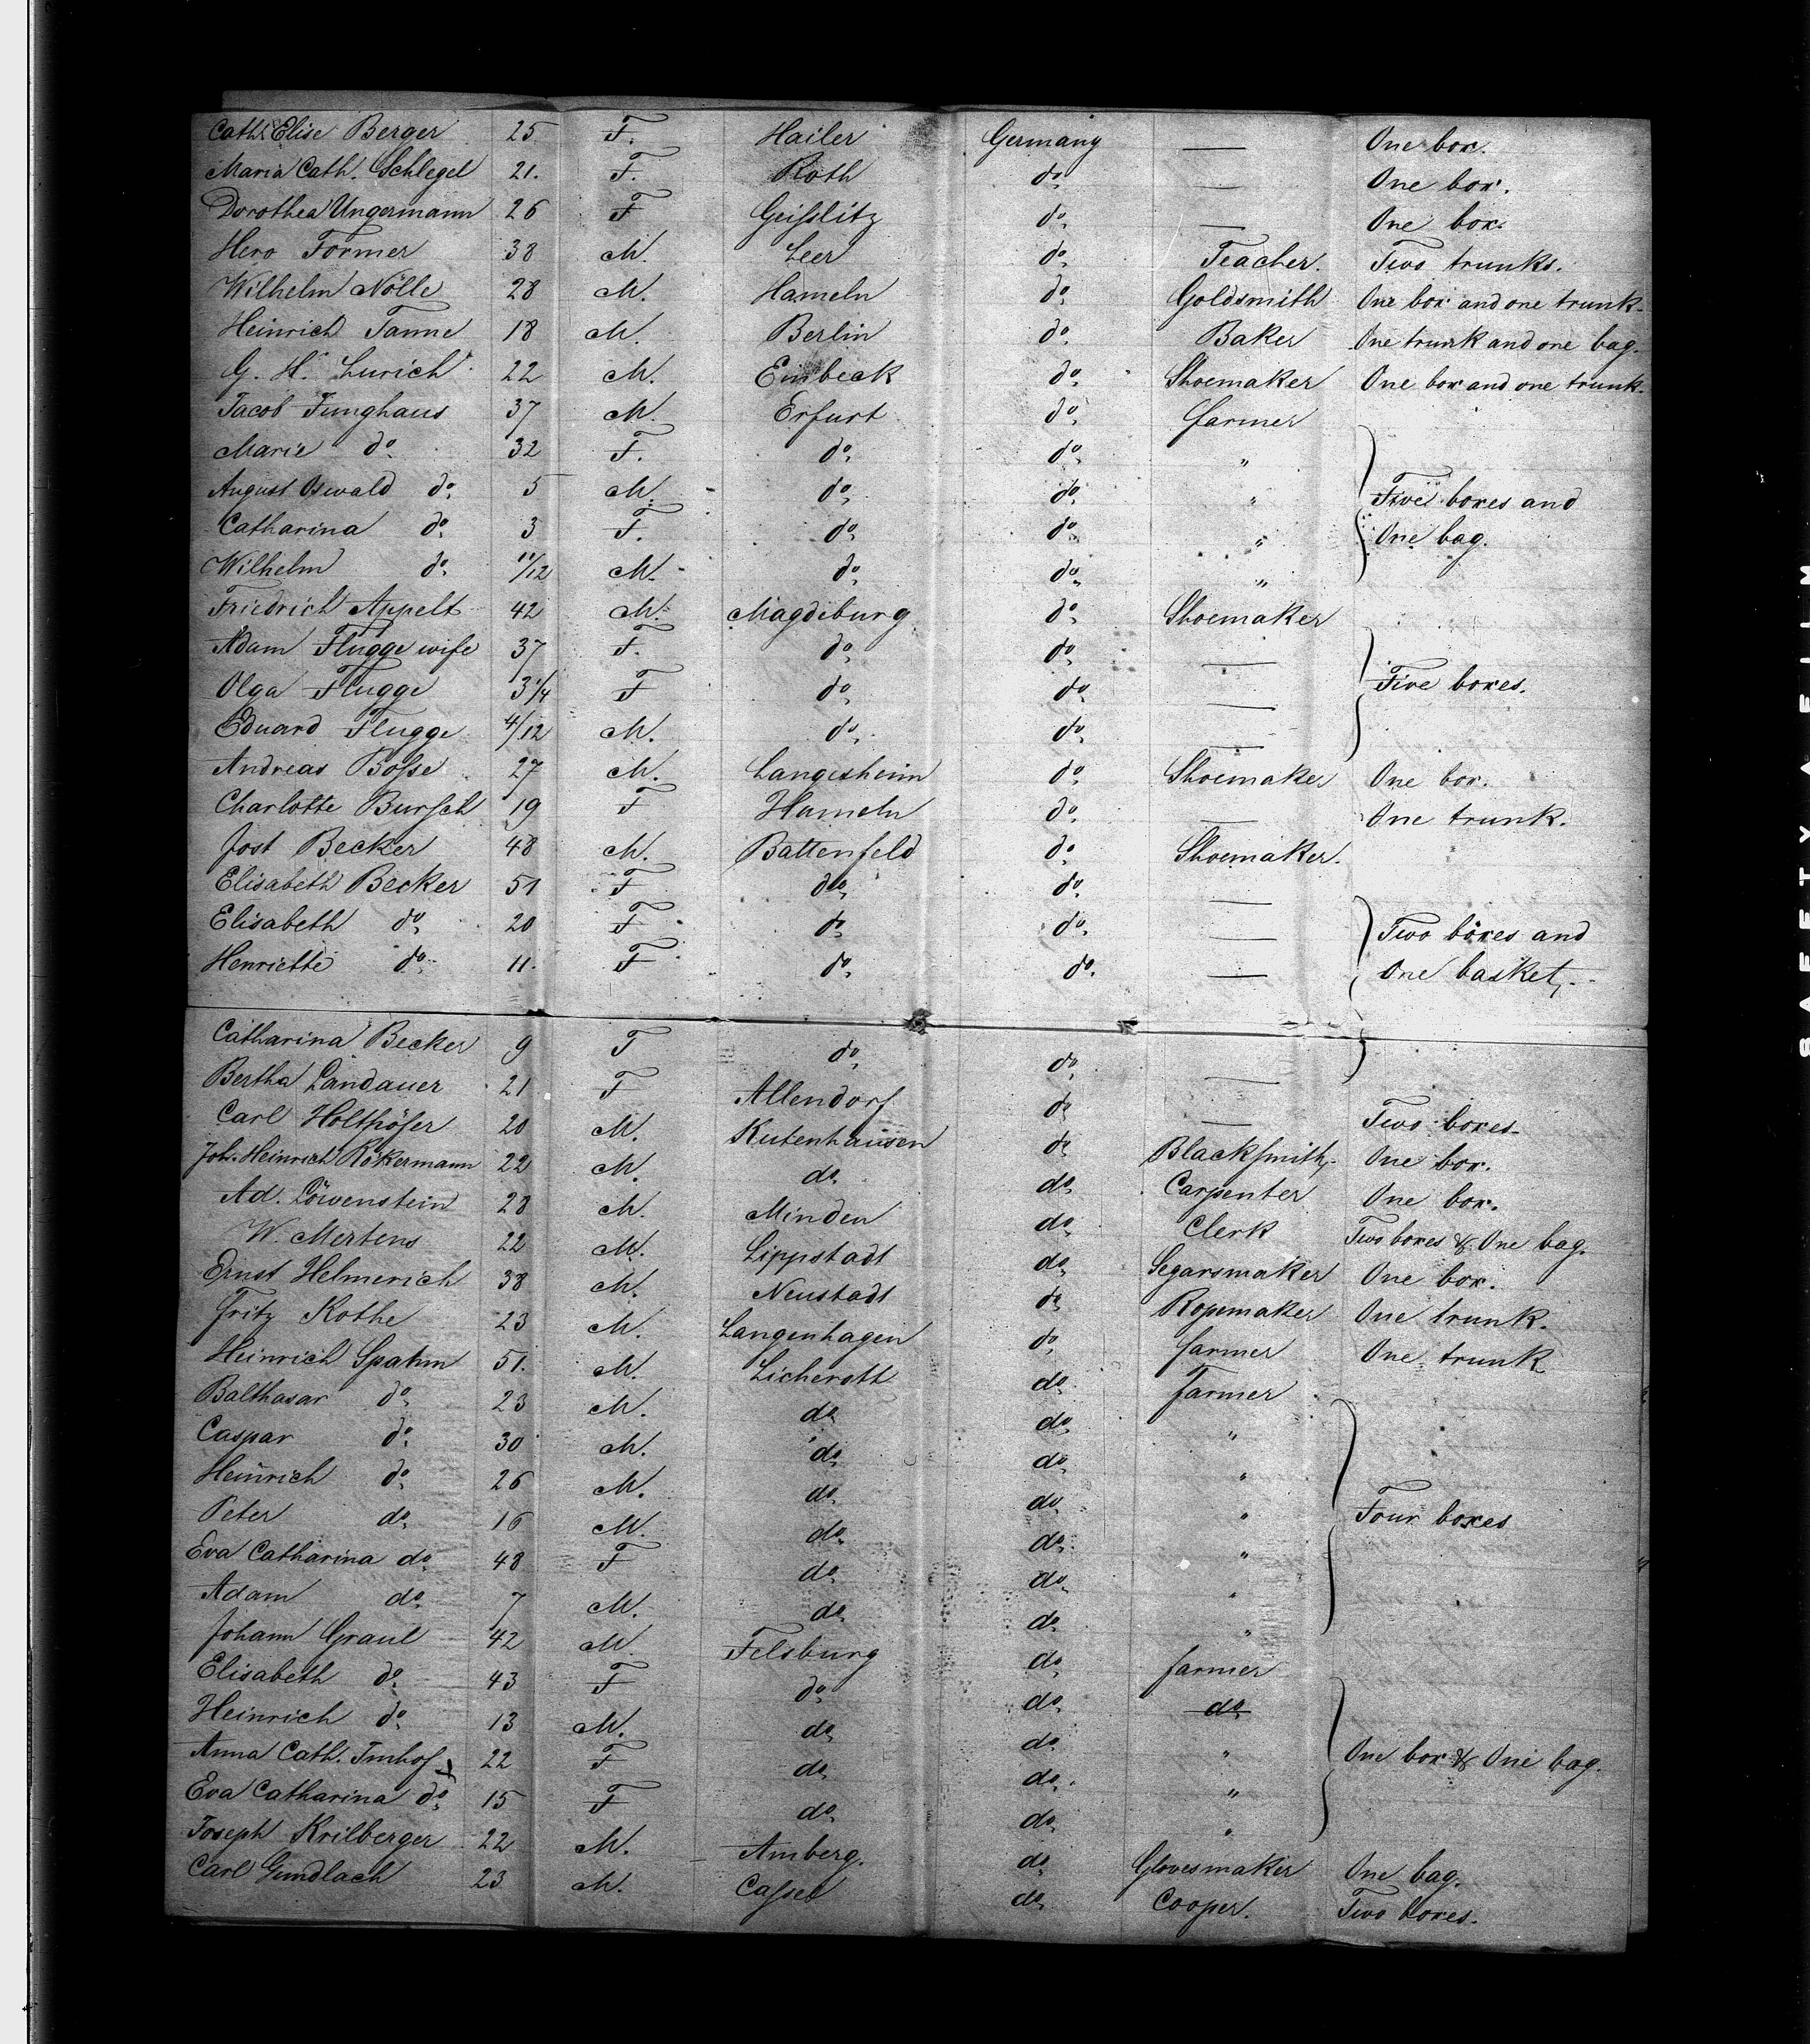 Cath. Elise Berger 25 F. Hailer Germany — One box.
Maria Cath. Schlegel 21. F. Roth do — One box.
Dorothea Ungermann 26 F Geißlitz do — One box.
Hero Former 38 M. Leer do Teacher. Two trunks.
Wilhelm Nölle 28 M. Hameln do Goldsmith One box and one trunk.
Heinrich Tanne 18 M. Berlin do Baker One trunk and one bag.
G. H. Lurich 22 M. Einbeck do Shoemaker One box and one trunk.
Jacob Junghaus 37 M. Erfurt do farmer
Marie do 32 F. do do "
August Oswald do 5 M. do do " Five boxes and
Catharina do 3 F. do do " One bag.
Wilhelm do 11/12 M. do do "
Friedrich Appelt 42 M. Magdeburg do Shoemaker
Adam Flugge wife 37 F. do do —
Olga Flugge 3 1/4 F do do — Five boxes.
Eduard Flugge 4/12 M. do do —
Andreas Boße 27 M. Langesheim do Shoemaker One box.
Charlotte Bursch 19 F Hameln do — One trunk.
Jost Becker 48 M. Battenfeld do Shoemaker.
Elisabeth Becker 51 F do do —
Elisabeth do 20 F do do — Two boxes and
Henriette do 11. F do do. — One basket.
Catharina Becker 9 F do do —
Bertha Landauer 21 F Allendorf do — Two boxes
Carl Holthöfer 20 M. Kutenhausen do Blacksmith One box.
Joh. Heinrich Rökermann 22 M. do do Carpenter One box.
Ad. Löwenstein 28 M. Minden do Clerk Two boxes & One bag.
W. Mertens 22 M. Lippstadt do Segarsmaker One box.
Ernst Helmerich 38 M. Neustadt do Ropemaker One trunk.
Fritz Kothe 23 M. Langenhagen do farmer One trunk
Heinrich Spahm 51. M. Licherott do farmer
Balthasar do 23 M. do do "
Caspar do 30 M. do do "
Heinrich do 26 M. do do " Four boxes
Peter do 16 M. do do "
Eva Catharina do 48 F do do "
Adam do 7 M. do do "
Johann Graul 42 M Felsburg do farmer
Elisabeth do 43 F do do do
Heinrich do 13 M. do do "
Anna Cath. Imhof 22 F do do " One box & One bag.
Eva Catharina do 15 F do do "
Joseph Krilberger 22 M. Amberg. do Glovesmaker One bag.
Carl Gundlach 23 M. Caßel do Cooper. Two boxes.
SAFETY A FILM